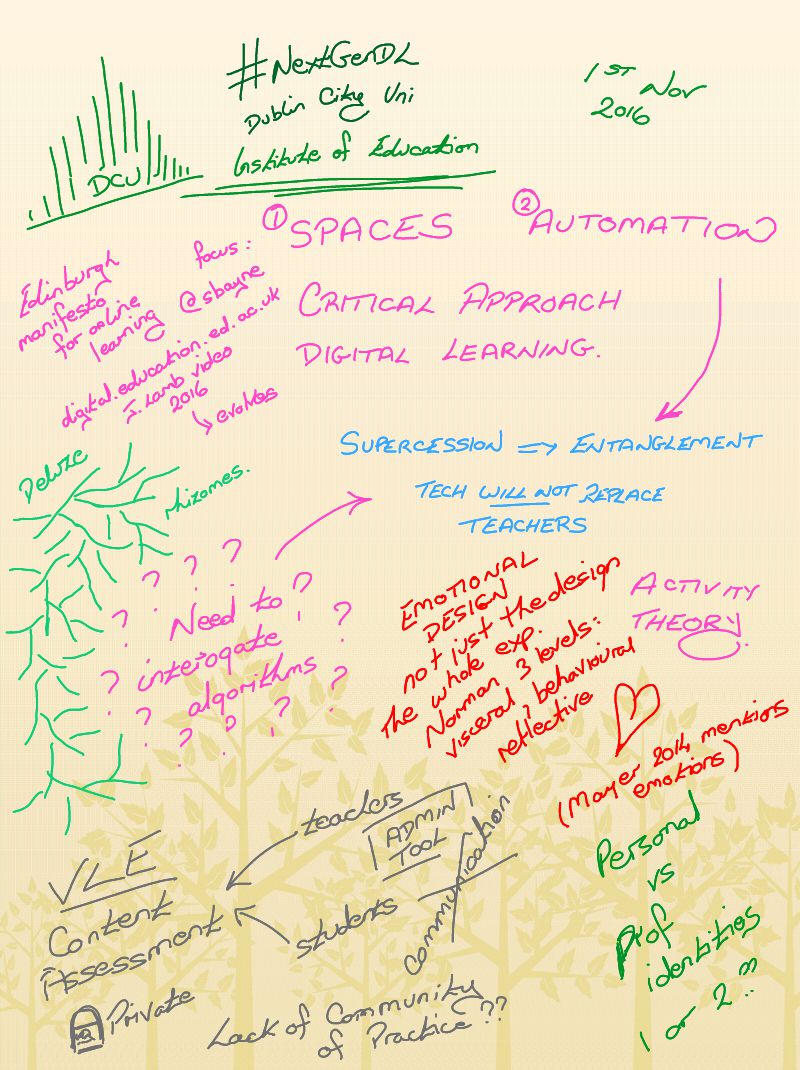 #NextGenDL
Dublin City Uni
Institute of Education
1ST Nov
2016
DCU
① SPACES
② AUTOMATION
Edinburgh
manifesto
for online
learning
focus:
@sbayne
digital.education.ed.ac.uk
J. Lamb video
2016
↳ evolves
CRITICAL APPROACH
DIGITAL LEARNING.
SUPERCESSION => ENTANGLEMENT
TECH WILL NOT REPLACE
TEACHERS
Deluze
rhizomes.
? ? ? ?
? Need to ?
? interogate ?
? algorithms ?
? ? ?
EMOTIONAL
DESIGN
not just the design
the whole exp.
Norman 3 levels:
visceral, behavioural
reflective
ACTIVITY
THEORY
(Mayer 2014 mentions
emotions)
VLE
Content
Assessment
Private
teachers
students
ADMIN
TOOL
communication
Lack of Community
of Practice??
Personal
vs
Prof
identities
1 or 2